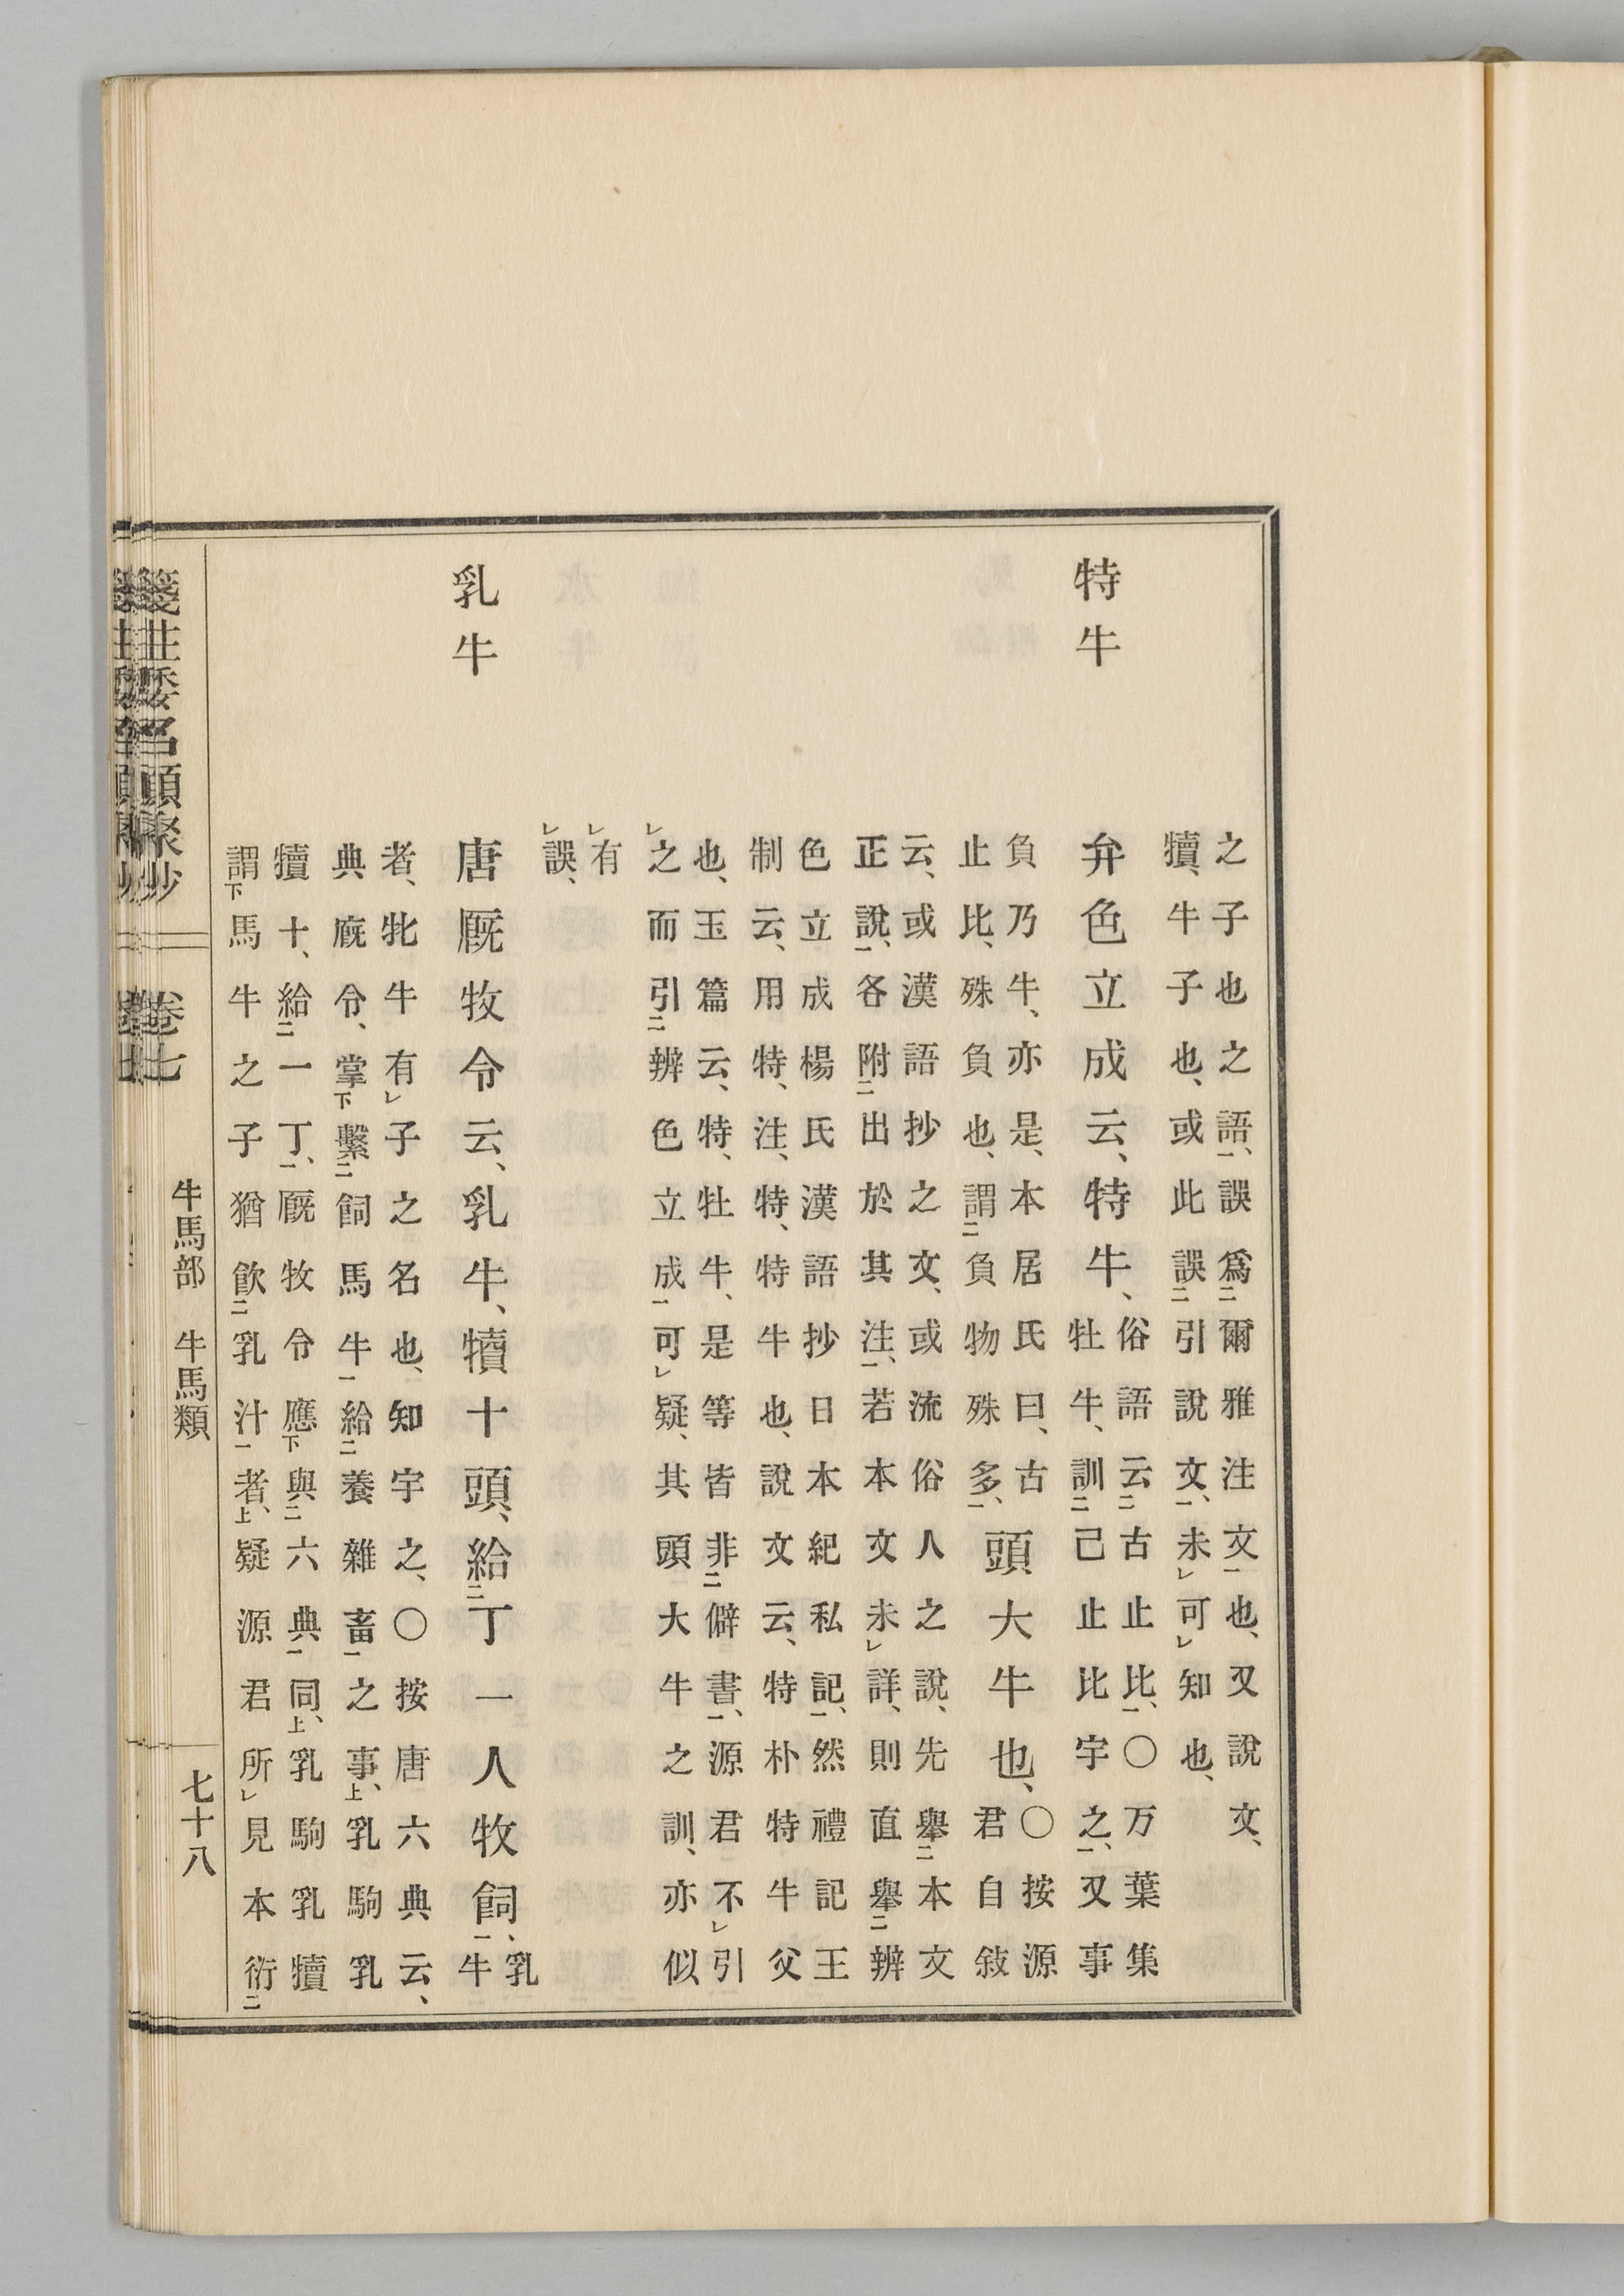 之子也之語、誤爲爾雅注文也、又說文、
犢、牛子也、或此誤引說文、未可知也、
特牛
弁色立成云、特牛、
俗語云古止比、〇万葉集
牡牛、訓己止比宇之、又事
負乃牛、亦是、本居氏曰、古
止比、殊負也、謂負物殊多、
頭大牛也、
〇按源
君自敍
云、或漢語抄之文、或流俗人之說、先舉本文
正說、各附出於其注、若本文未詳、則直舉辨
色立成楊氏漢語抄日本紀私記、然禮記王
制云、用特、注、特、特牛也、說文云、特朴特牛父
也、玉篇云、特、牡牛、是等皆非僻書、源君不引
之而引辨色立成可疑、其頭大牛之訓、亦似
有
誤、
乳牛
唐厩牧令云、乳牛、犢十頭、給丁一人牧飼、
乳
牛
者、牝牛有子之名也、知宇之、〇按唐六典云、
典廐令、掌繫飼馬牛給養雜畜之事、乳駒乳
犢十、給一丁、厩牧令應與六典同、乳駒乳犢
謂馬牛之子猶飲乳汁者、疑源君所見本衍
卷七
牛馬部 牛馬類
七十八